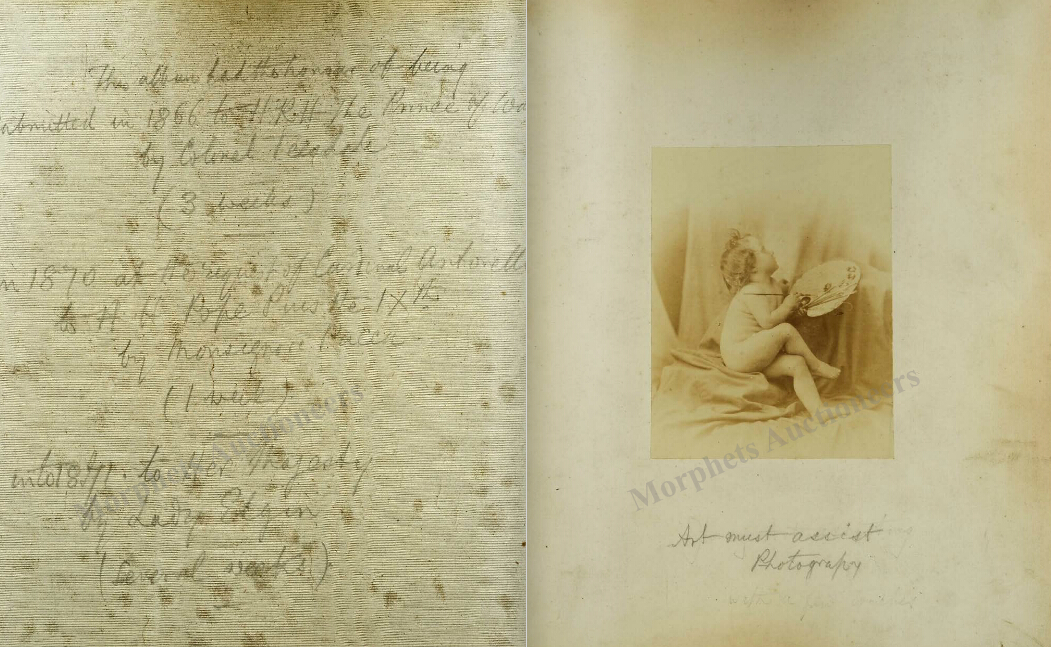 This album had the honour of being
submitted in 1866 to H.R.H The Prince of Wa
by Colonel Teesdale
(3 weeks)
in 1870 at the request of Cardinal Antonell
to H H Pope Pius the IXth
by Monsignore Pacca
(1 week)
to Her Majesty
by Lady Elgin
(several weeks)
Morphets Auctioneers
Art must assist
Photography
Morphets Auctioneers